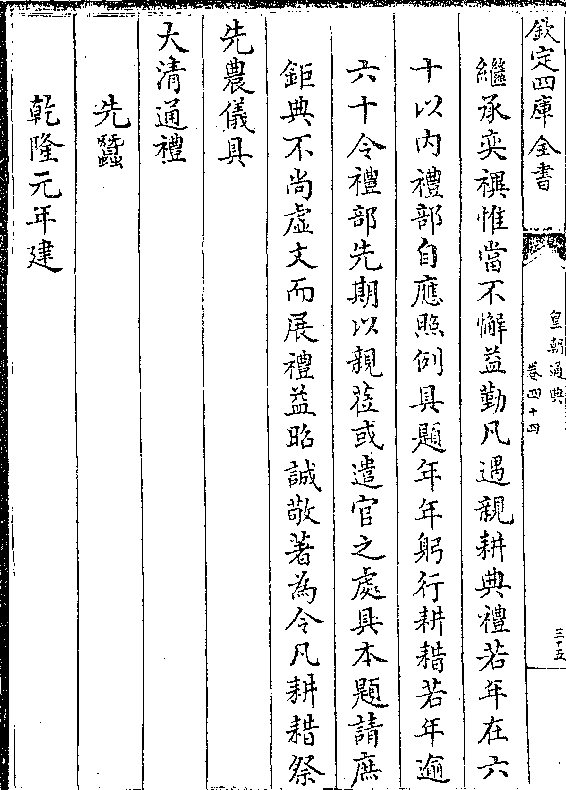 欽定四庫全書
皇朝通典
卷四十四
三十五
繼承奕禩惟當不懈益勤凡遇親耕典禮若年在六
十以內禮部自應照例具題年年躬行耕耤若年逾
六十令禮部先期以親蒞或遣官之處具本題請庶
鉅典不尚虛文而展禮益昭誠敬著為令凡耕耤祭
先農儀具
大清通禮
先蠶
乾隆元年建